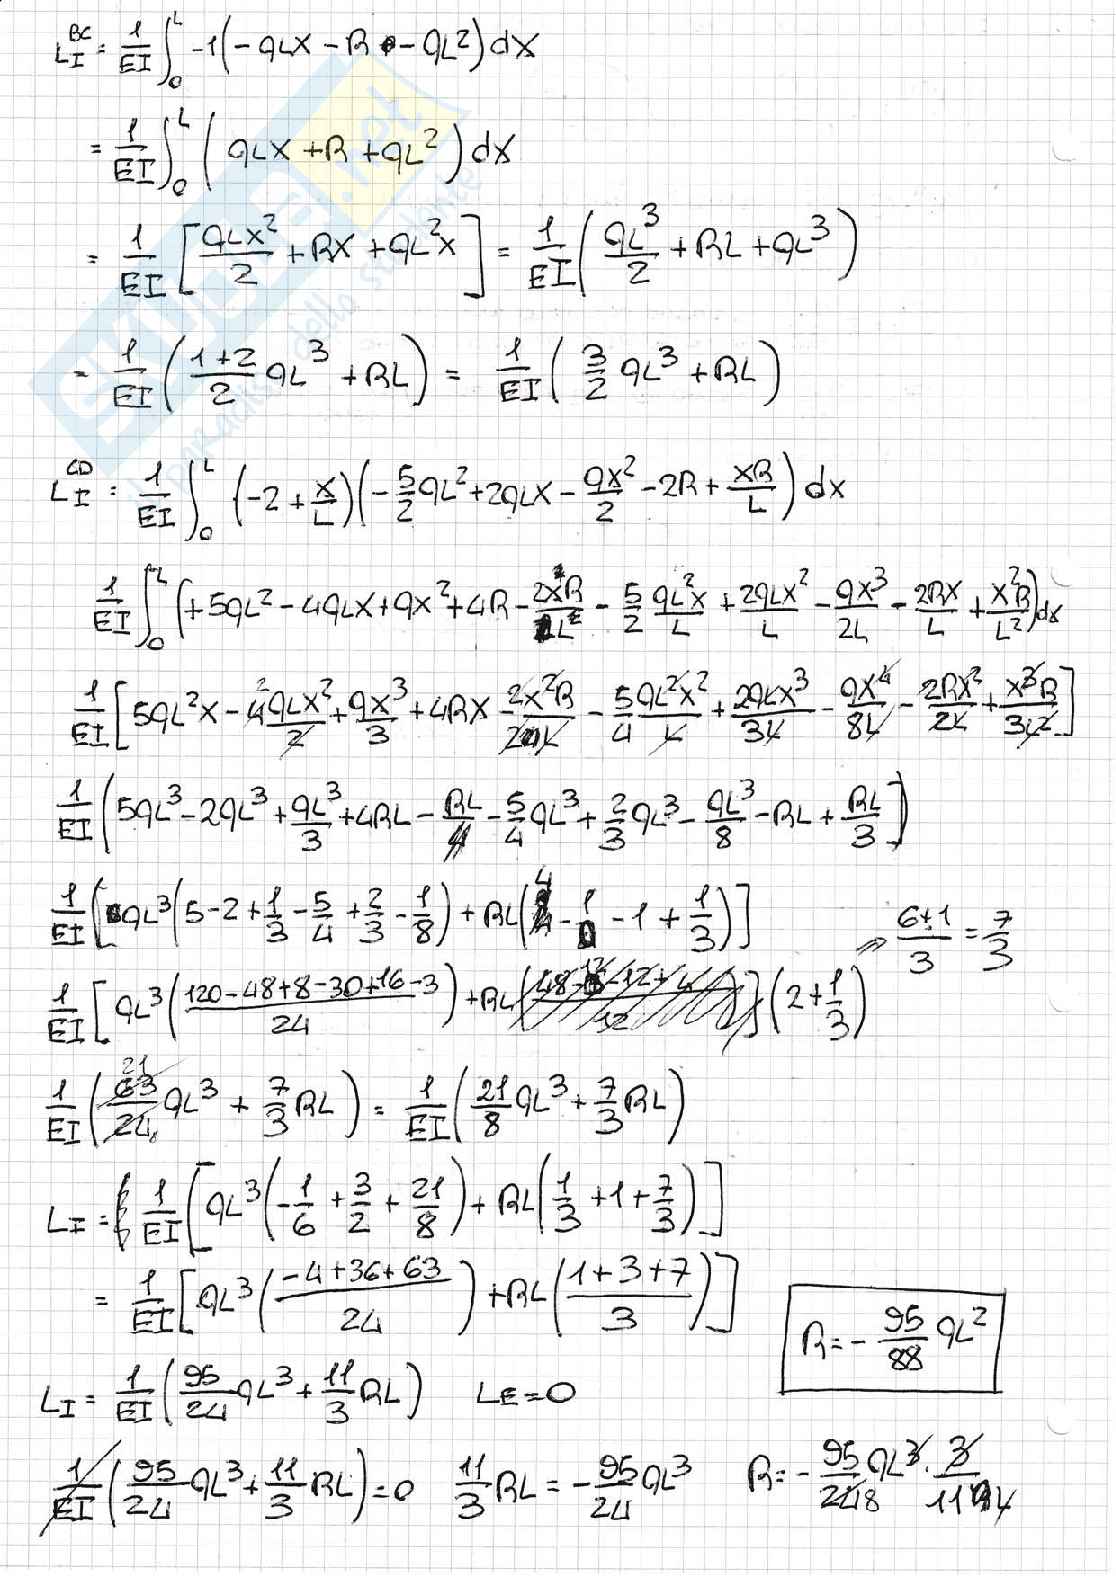 L_I^{BC} = \frac{1}{EI} \int_0^L -1(-qLx - R - qL^2) dx
= \frac{1}{EI} \int_0^L (qLx + R + qL^2) dx
= \frac{1}{EI} [\frac{qLx^2}{2} + Rx + qL^2x] = \frac{1}{EI} (\frac{qL^3}{2} + RL + qL^3)
= \frac{1}{EI} (\frac{1+2}{2} qL^3 + RL) = \frac{1}{EI} (\frac{3}{2} qL^3 + RL)
L_I^{CD} = \frac{1}{EI} \int_0^L (-2 + \frac{x}{L})(-\frac{5}{2} qL^2 + 2qLx - \frac{qx^2}{2} - 2R + \frac{xR}{L}) dx
\frac{1}{EI} \int_0^L (+5qL^2 - 4qLx + qx^2 + 4R - \frac{2xR}{L} - \frac{5}{2} \frac{qL^2x}{L} + \frac{2qLx^2}{L} - \frac{qx^3}{2L} - \frac{2Rx}{L} + \frac{x^2R}{L^2}) dx
\frac{1}{EI} [5qL^2x - 4\frac{qLx^2}{2} + \frac{qx^3}{3} + 4Rx - \frac{2x^2R}{2L} - \frac{5}{4} \frac{qL^2x^2}{L} + \frac{2qLx^3}{3L} - \frac{qx^4}{8L} - \frac{2Rx^2}{2L} + \frac{x^3R}{3L^2}]
\frac{1}{EI} (5qL^3 - 2qL^3 + \frac{qL^3}{3} + 4RL - RL - \frac{5}{4} qL^3 + \frac{2}{3} qL^3 - \frac{qL^3}{8} - RL + \frac{RL}{3})
\frac{1}{EI} [qL^3 (5 - 2 + \frac{1}{3} - \frac{5}{4} + \frac{2}{3} - \frac{1}{8}) + RL (4 - 1 - 1 + \frac{1}{3})] ⇒ \frac{6+1}{3} = \frac{7}{3}
\frac{1}{EI} [qL^3 (\frac{120-48+8-30+16-3}{24}) + RL (2 + \frac{1}{3})
\frac{1}{EI} (\frac{63}{24} qL^3 + \frac{7}{3} RL) = \frac{1}{EI} (\frac{21}{8} qL^3 + \frac{7}{3} RL)
L_I = \frac{1}{EI} [qL^3 (-\frac{1}{6} + \frac{3}{2} + \frac{21}{8}) + RL (\frac{1}{3} + 1 + \frac{7}{3})]
= \frac{1}{EI} [qL^3 (\frac{-4+36+63}{24}) + RL (\frac{1+3+7}{3})]
R = -\frac{95}{88} qL^2
L_I = \frac{1}{EI} (\frac{95}{24} qL^3 + \frac{11}{3} RL) L_E = 0
\frac{1}{EI} (\frac{95}{24} qL^3 + \frac{11}{3} RL) = 0 \frac{11}{3} RL = -\frac{95}{24} qL^3 R = -\frac{95}{24 8} qL^3 · \frac{3}{11 L}
SKUOLA.net
il paradiso dello studente